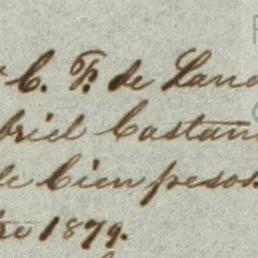 C. F. de Land
briel Castan
de Cien pesos.
re 1879.